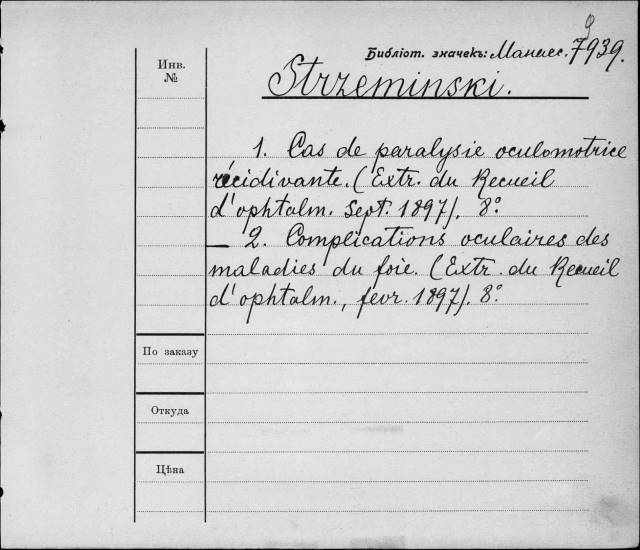 9
Библіот. значекъ: 7939.
Инв.
№
Strzeminski.
1. Cas de paralysie oculomotrice
récidivante. (Extr. du Recueil
d'ophtalm. Sept. 1897). 8º
— 2. Complications oculaires des
maladies du foie. (Extr. du Recueil
d'ophtalm., fevr. 1897). 8º
По заказу
Откуда
Цѣна